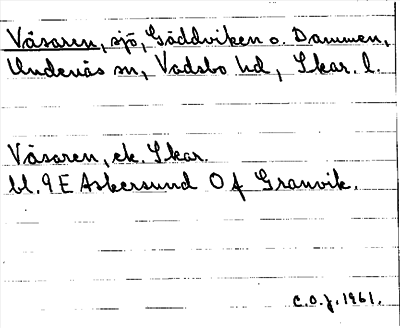 Våsaren, sjö, Gäddviken o. Dammen,
Undenäs sn, Vadsbo hd, Skar. l.
Våsaren, ek. Skar.
bl. 9 E Askersund O f Granvik.
C.O.J. 1961.